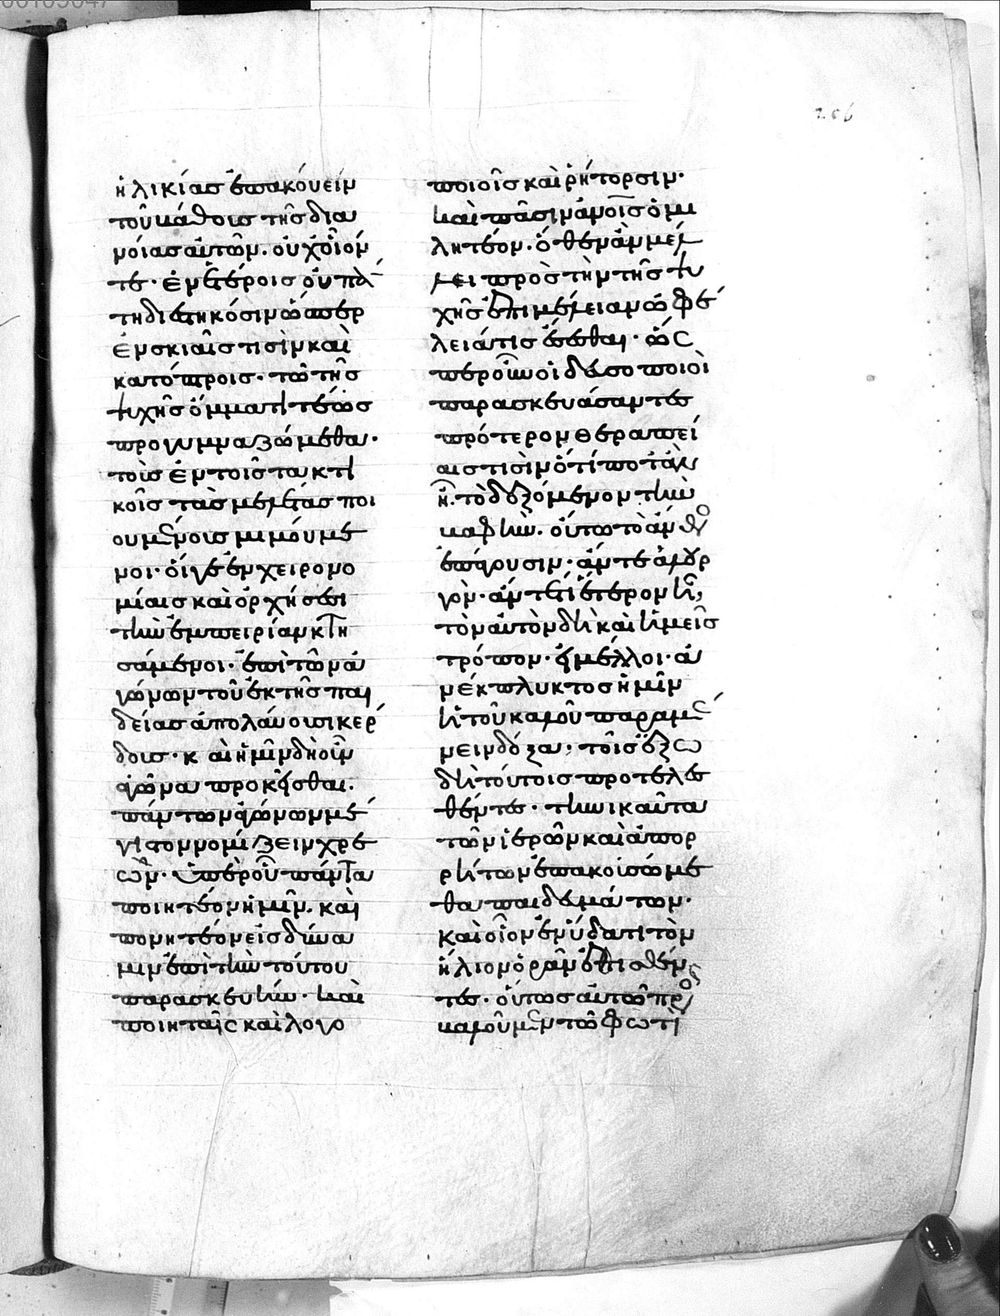 256
ἡλικίας ἐπακούειν
τοῦ βάθους τῆς δια
νοίας αὐτῶν. οὐχ οἷόν
τε· ἐν ἑτέροις οὐ πά
τη διεστηκόσιν ὥσπερ
ἐν σκιαῖς τισὶν καὶ
κατόπτροις. τῷ τῆς
ψυχῆς ὄμματι τέως
προγυμναζώμεθα·
τοὺς ἐν τοῖς τακτι
κοῖς τὰς μελέτας ποι
ουμένους μιμούμε
νοι· οἵ γε ἐν χειρονο
μίαις καὶ ὀρχήσεσι
τὴν ἐμπειρίαν κτη
σάμενοι. ἐπὶ τῶν ἀ
γώνων τοῦ ἐκ τῆς παι
δείας ἀπολαύουσι κέρ
δους. καὶ ἡμῖν δὴ οὖν
ἀγῶνα προκεῖσθαι.
πάντων ἀγώνων μέ
γιστον νομίζειν χρε
ών. ὑπὲρ οὗ πάντα
ποιητέον ἡμῖν. καὶ
πονητέον εἰς δύνα
μιν ἐπὶ τὴν τούτου
παρασκευήν. καὶ
ποιηταῖς καὶ λογο
ποιοῖς καὶ ῥήτορσιν.
καὶ πᾶσιν ἀν̅οις ὁμι
λητέον. ὅθεν ἂν μέλ
λει πρὸς τὴν τῆς ψυ
χῆς ἐπιμέλειαν ὠφέ
λειά τις ἔσεσθαι. ὥς
περ οὖν οἱ δευσοποιοὶ
παρασκευάσαντες
πρότερον θεραπεί
αις τισὶν ὅ τί ποτ' ἂν
ῇ. τὸ δεξόμενον τὴν
βαφήν. οὕτω τὸ ἄνθο
ἐπάγουσιν. ἄν τε ἁλουρ
γὸν. ἄν τέ τι ἕτερον ᾖ,
τὸν αὐτὸν δὴ καὶ ἡμεῖς
τρόπον. εἰ μέλλοι. ἀ
νέκπλυτος ἡμῖν
ἡ τοῦ καλοῦ παραμέ
νειν δόξα, τοῖς ἔξω
δὴ τούτοις προτελεσ
θέντες. τηνικαῦτα
τῶν ἱερῶν καὶ ἀπορ
ρήτων ἐπακουσώμε
θα παιδευμάτων.
καὶ οἷον ἐν ὕδατι τὸν
ἥλιον ὁρᾶν ἐθισθέν
τες. οὕτως αὐτῷ προσ
βαλοῦμεν τῷ φωτὶ